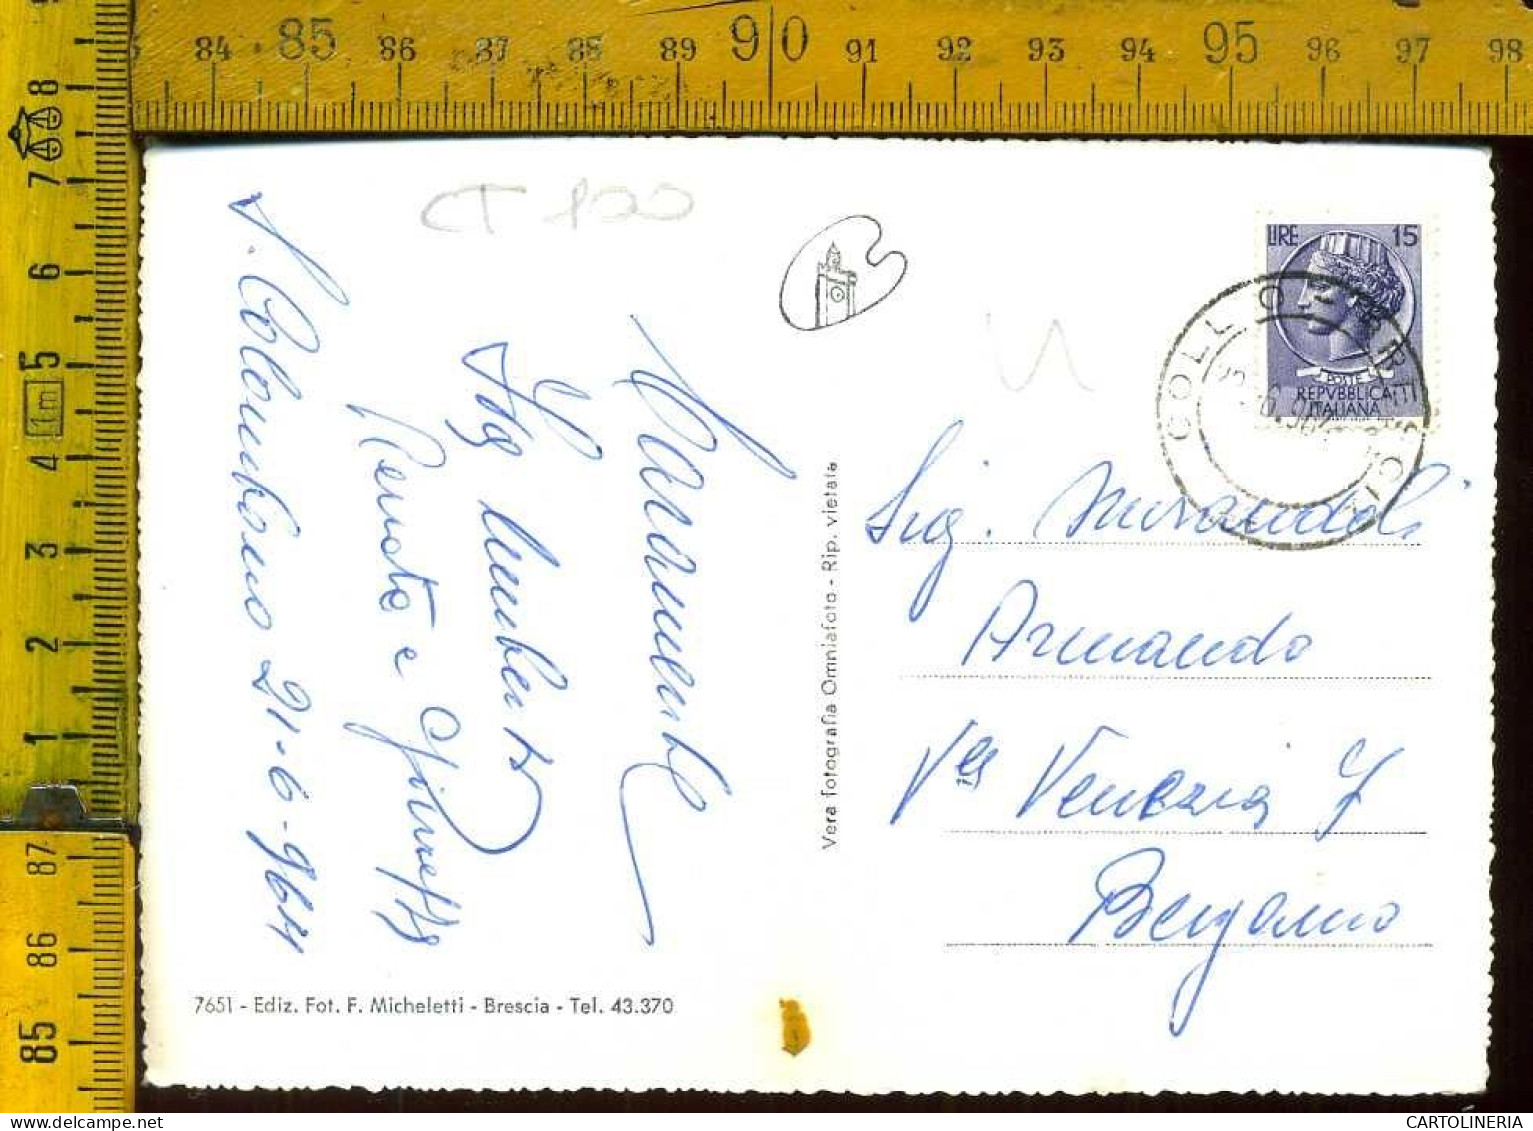 84 85 86 87 88 89 90 91 92 93 94 95 96 97 98
8
7
6
5
1m
4
3
2
1
87
86
85
CT 100
S. Colombano 21-6-964
Renata e Giuseppe
Umberto
LIRE 15
POSTE
REPVBBLICA
ITALIANA
COLLIO
BRESCIA
Vera fotografia Omniafoto - Rip. vietata
Sig. Morandoli
Armando
Venezia 7
Bergamo
7651 - Ediz. Fot. F. Micheletti - Brescia - Tel. 43.370
CARTOLINERIA